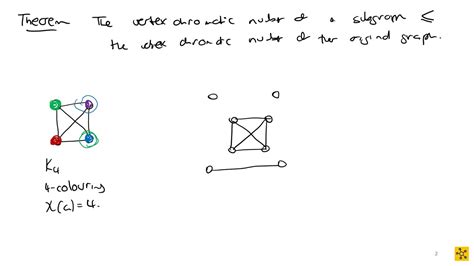 Theorem The vertex chromatic number of a subgraph ≤
the vertex chromatic number of the original graph.
K4
4-colouring
χ(G)=4.
2